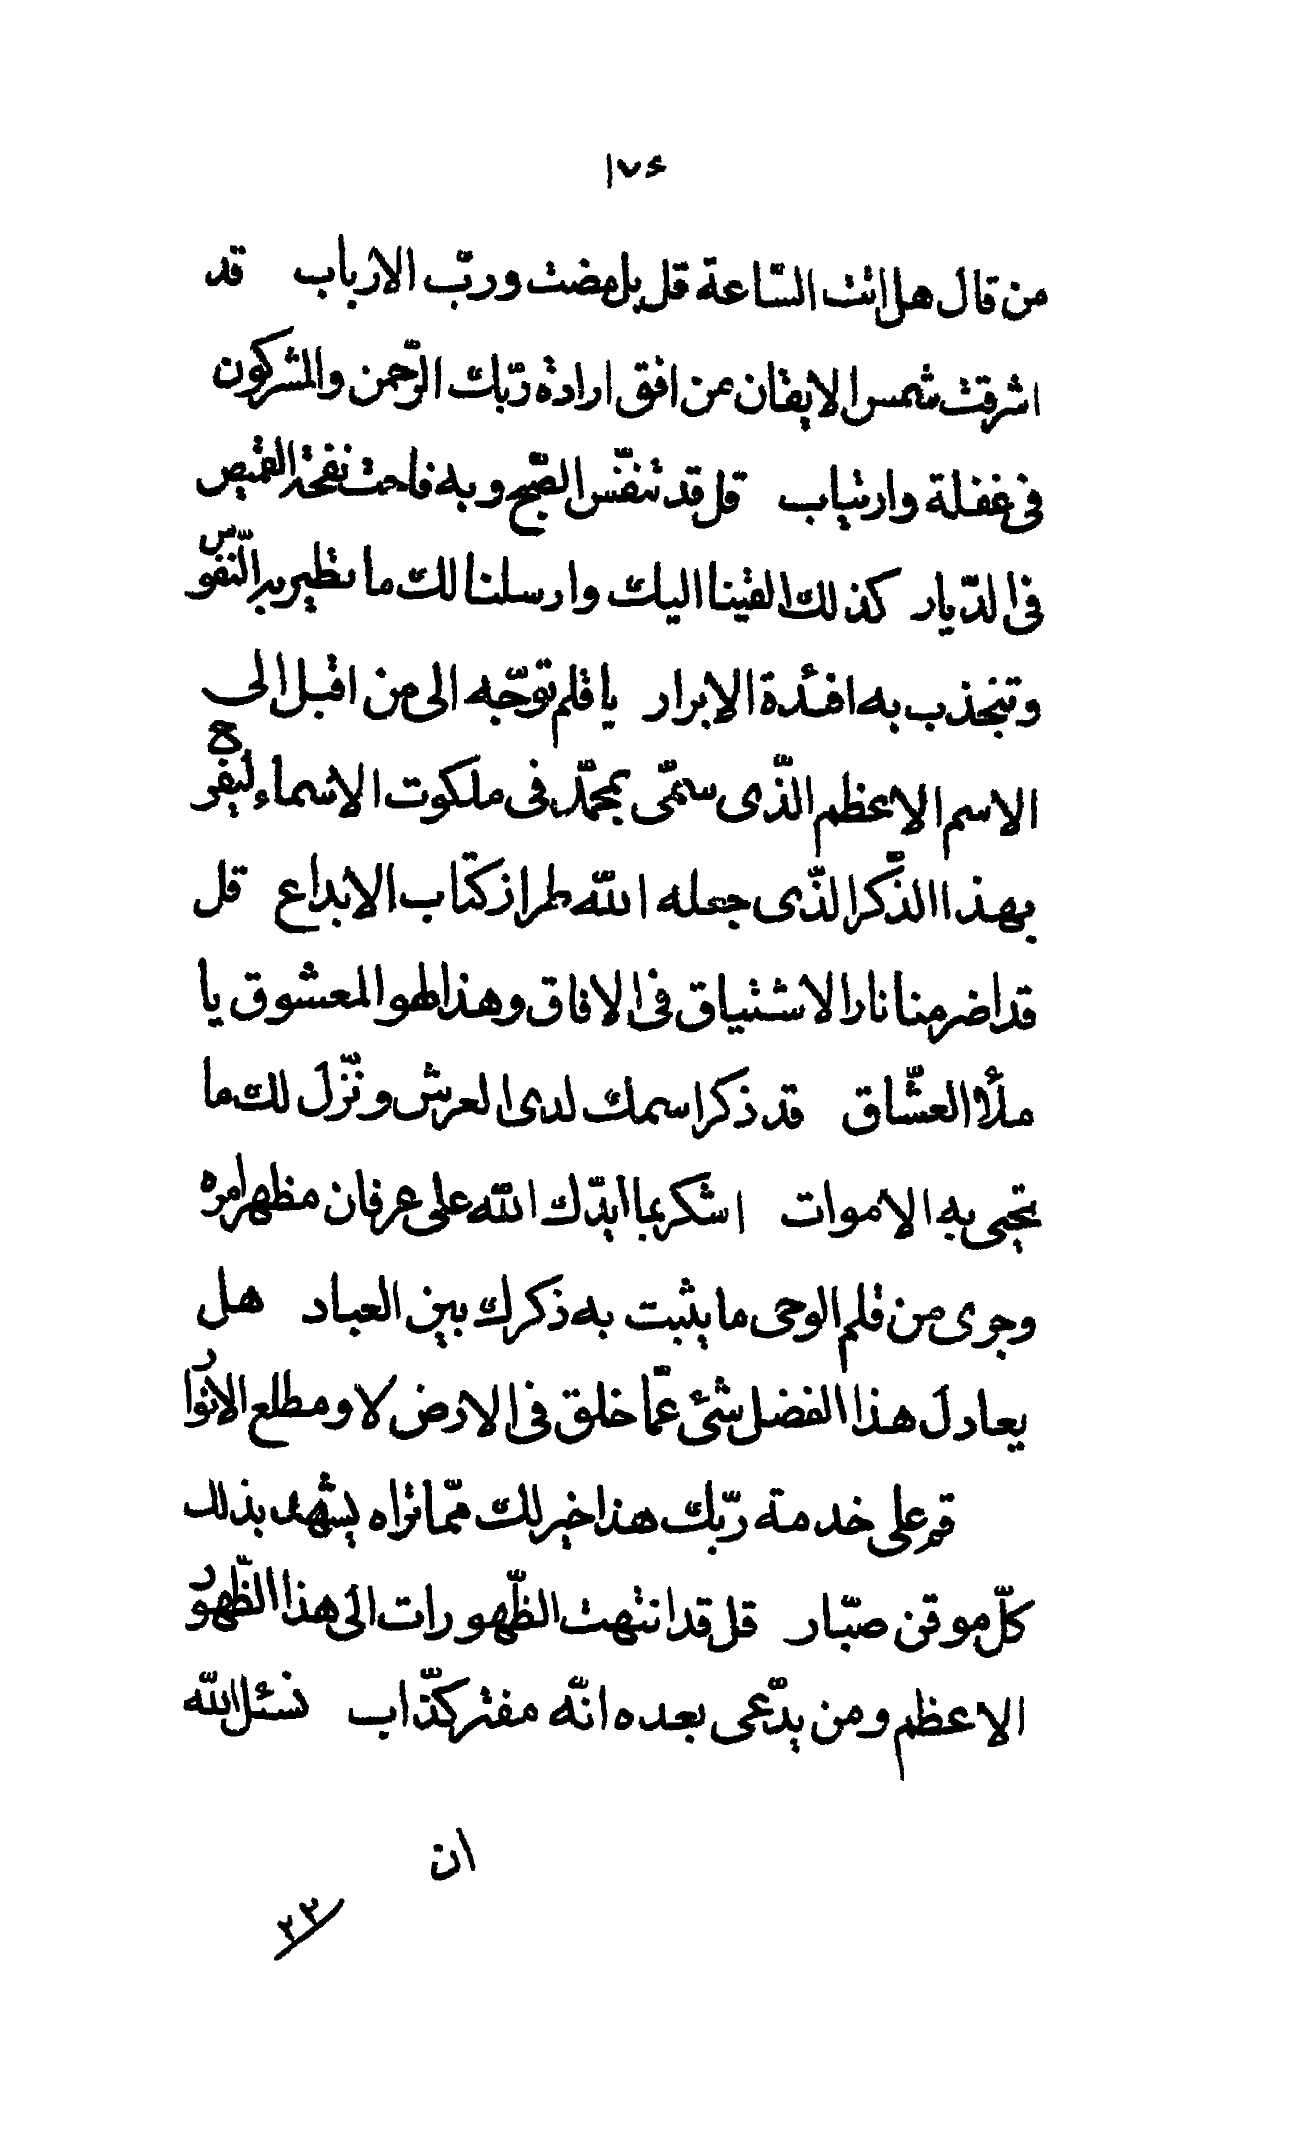 ١٧٤
من قال هل اتت السّاعة قل بل مضت و ربّ الارباب قد
اشرقت شمس الايقان من افق ارادة ربّك الرّحمن والمشركون
فى غفلة وارتياب قل قد تنفّس الصّبح و به فاحت نفحة القميص
فى الدّيار كذلك القينا اليك وارسلنا لك ما تطير به النّفوس
و تنجذب به افئدة الابرار يا قلم توجّه الى من اقبل الى
الاسم الاعظم الّذى سمّى بمحمّد فى ملكوت الاسماء ليفرح
بهذا الذّكر الّذى جعله الله طراز كتاب الابداع قل
قد اضرمنا نار الاشتياق فى الافاق و هذا لهو المعشوق يا
ملأ العشّاق قد ذكر اسمك لدى العرش و نزّل لك ما
تحيى به الاموات اشكر بما ايّدك الله على عرفان مظهر امره
وجرى من قلم الوحى ما يثبت به ذكرك بين العباد هل
يعادل هذا الفضل شئ عمّا خلق فى الارض لا و مطلع الانوار
قم على خدمة ربّك هذا خير لك ممّا تراه يشهد بذلك
كلّ موقن صبّار قل قد انتهت الظّهورات الى هذا الظّهور
الاعظم و من يدّعى بعده انّه مفتر كذّاب نسئل الله
ان
٢٣